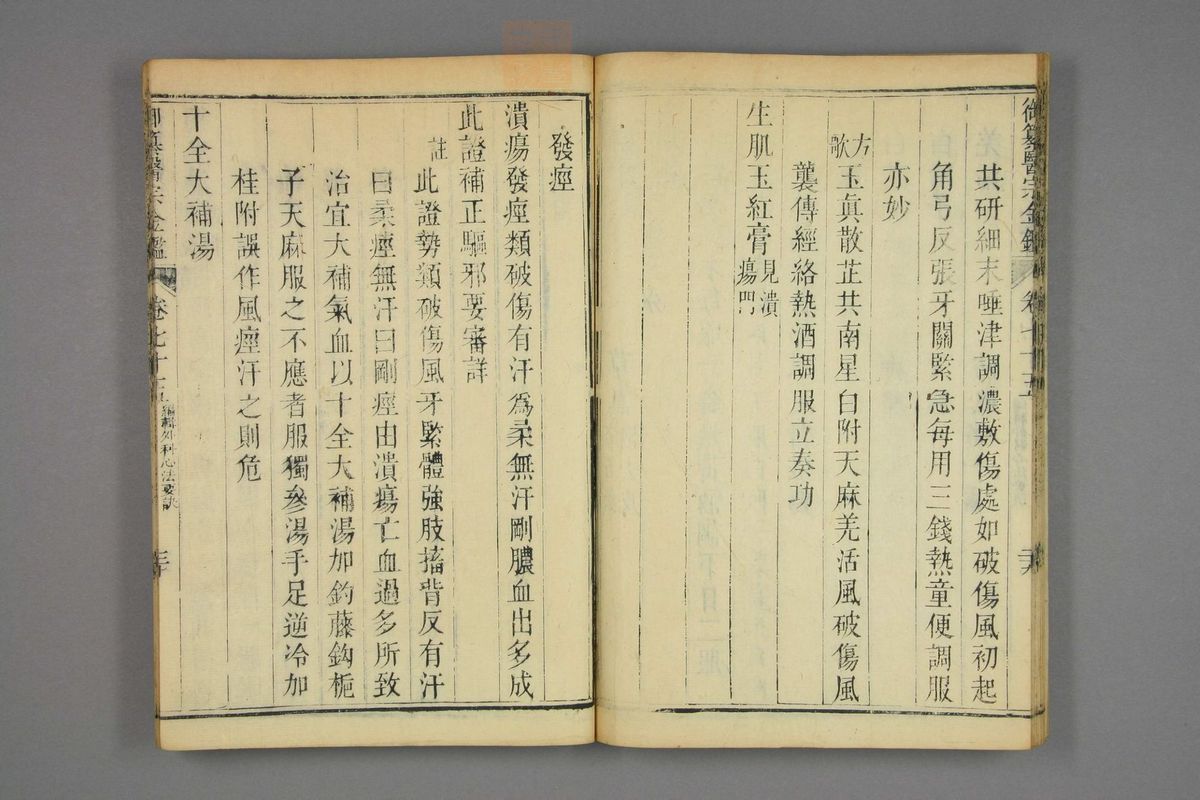 御纂醫宗金鑑 卷七十五
共研細末唾津調濃敷傷處如破傷風初起
角弓反張牙關緊急每用三錢熱童便調服
亦妙
方歌 玉眞散芷共南星白附天麻羌活風破傷風
襲傳經絡熱酒調服立奏功
生肌玉紅膏 見潰瘍門
發痙
潰瘍發痙類破傷有汗爲柔無汗剛膿血出多成
此證補正驅邪要審詳
註 此證勢類破傷風牙緊體強肢搐背反有汗
曰柔痙無汗曰剛痙由潰瘍亡血過多所致
治宜大補氣血以十全大補湯加釣藤鈎梔
子天麻服之不應者服獨參湯手足逆冷加
桂附誤作風痙汗之則危
十全大補湯
御纂醫宗金鑑 卷七十 編輯外科心法要訣